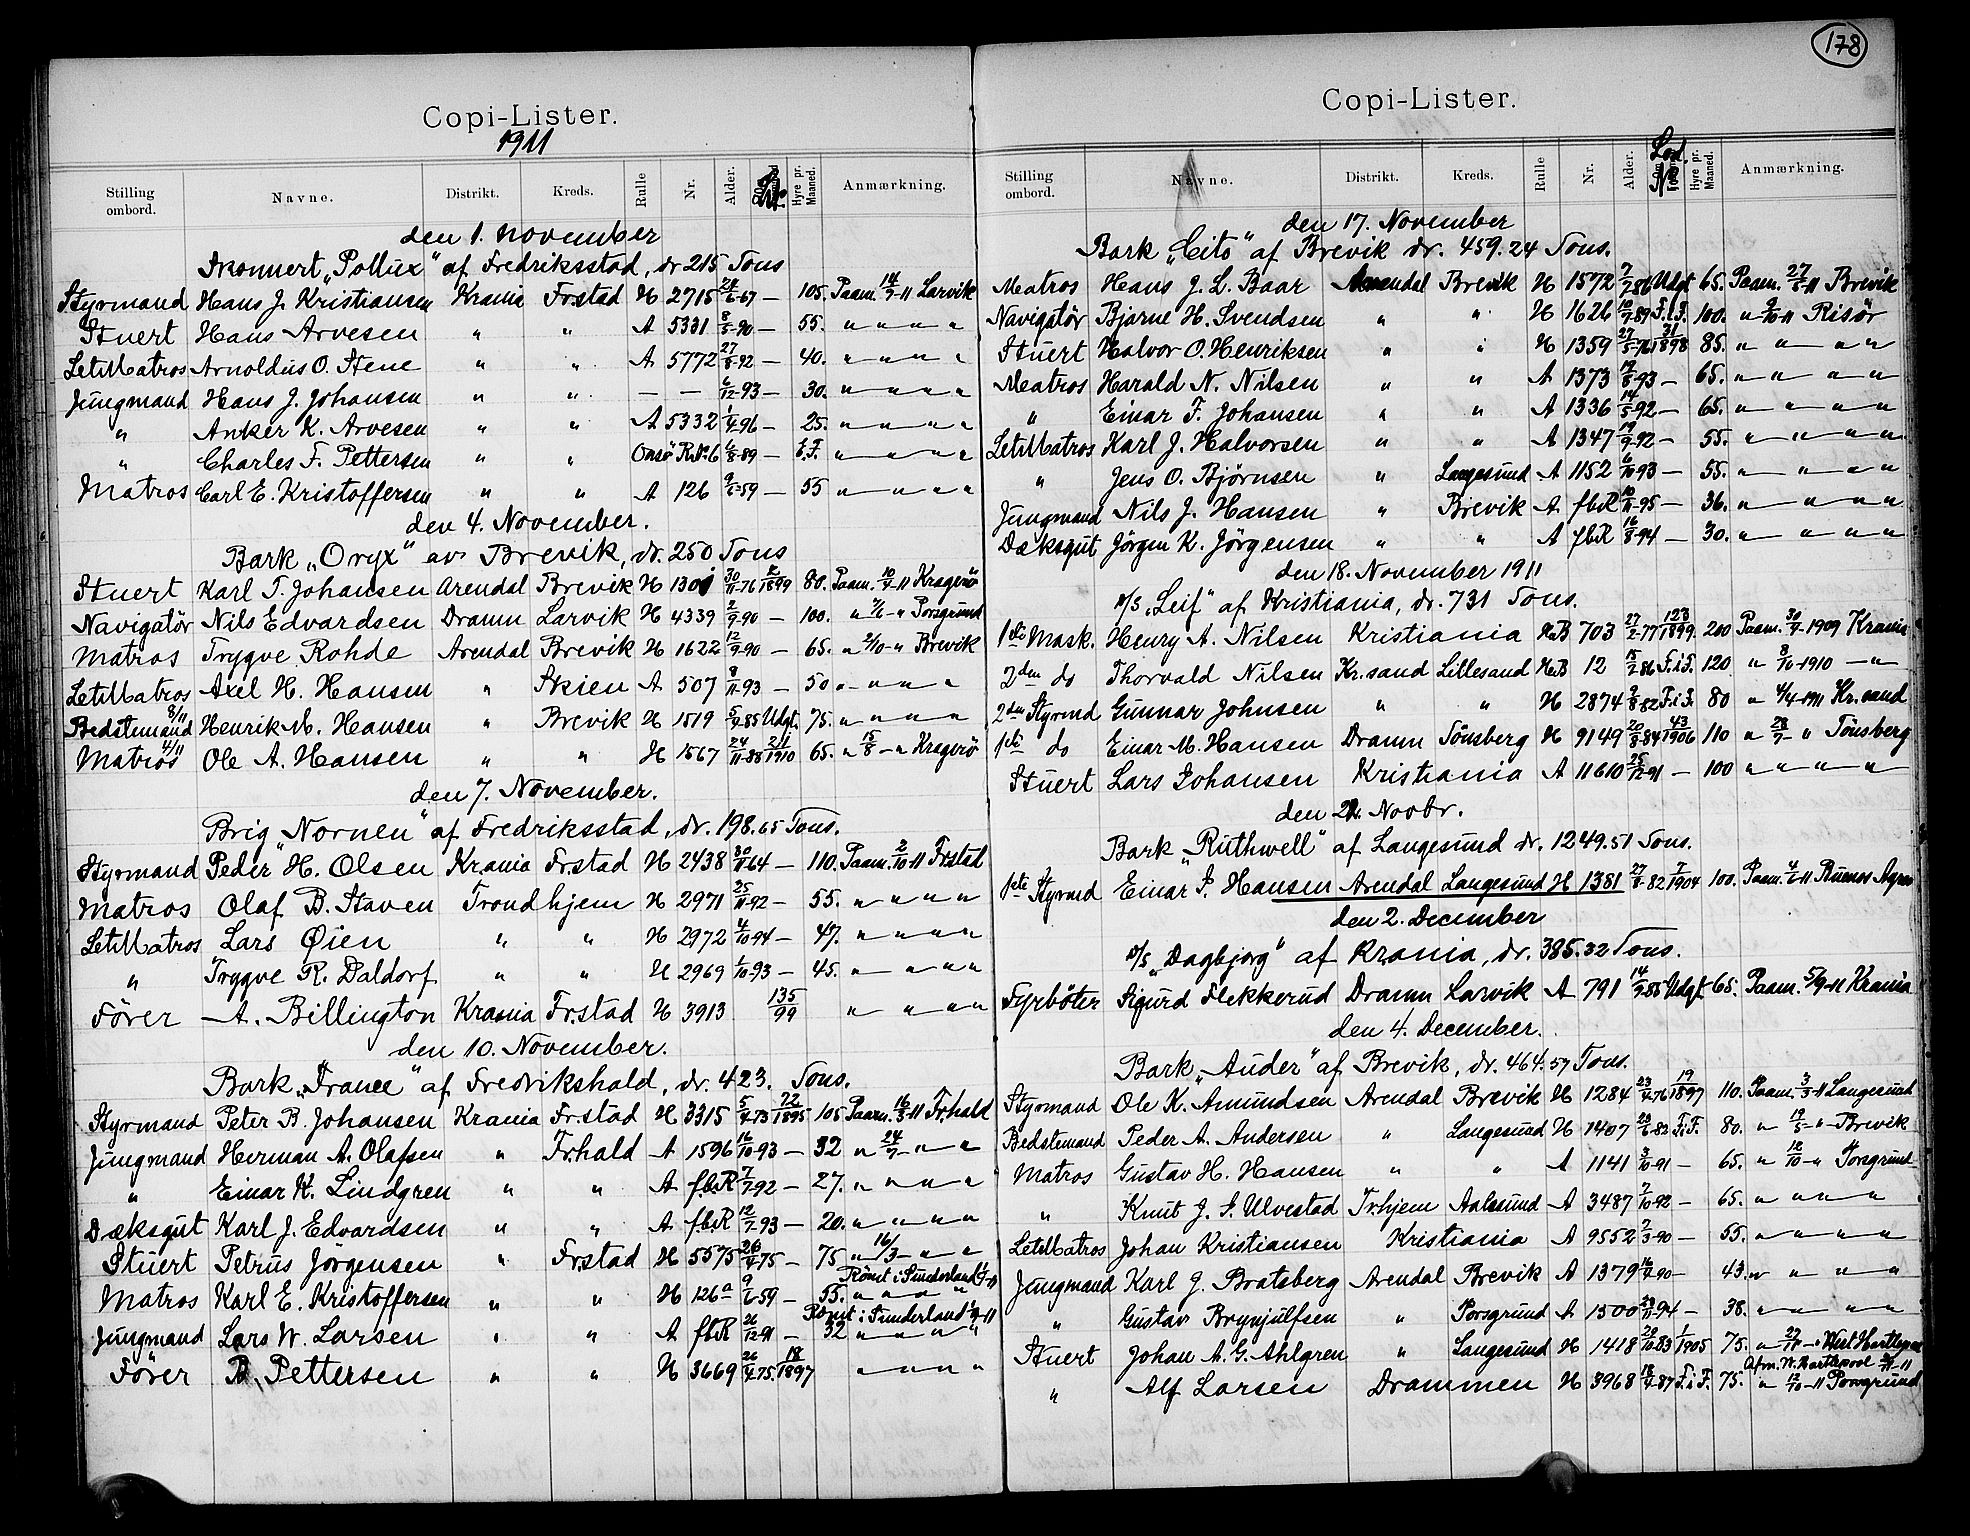 178
Copi-Lister.
1911
Stilling ombord. Navne. Distrikt. Kreds. Rulle Nr. Alder. Hyre pr. Maaned. Anmærkning.
den 1. November
Skonnert „Pollux" af Fredriksstad, dr 215 Tons
Styrmand Hans J. Kristiansen Krania Fr.stad H 2715 28/6-67 — 105. Paam. 14/9-11 Larvik
Stuert Hans Arvesen " " A 5331 8/5-90 — 55. " " " "
LetMatros Arnoldus O. Stene " " A 5772 27/8-92 — 40. " " " "
Jungmand Hans J. Johansen " " — — 6/12-93 — 30. " " " "
" Anker K. Arvesen " " A 5332 1/4-96 — 25. " " " "
" Charles F. Pettersen " " Onsö R.№6 6/8-89 — E.F. " " " "
Matros Carl E. Kristoffersen " " A 126 9/6-59 — 55 " " " "
den 4. November.
Bark „Oryx" av Brevik, dr. 250 Tons
Stuert Karl T. Johansen Arendal Brevik H 1301 30/11-76 2/1899 80. Paam. 10/9-11 Kragerö
Navigatör Nils Edvardsen Dramn Larvik H 4339 2/9-90 — 100. " - " Porsgrund
Matros Trygve Rohde Arendal Brevik H 1622 12/9-90 — 65. " 2/10 - " Brevik
LetMatros Axel H. Hansen " Skien A 507 8/11-93 — 50 " " " "
8/11
Bedstemand Henrik M. Hansen " Brevik H 1519 5/9-85 Udgt. 75. " " " "
4/11
Matros Ole A. Hansen " " H 1567 24/11-88 21/1910 65. " 15/8 - " Kragerö
den 7. November.
Brig „Nornen" af Fredriksstad, dr. 198.65 Tons.
Styrmand Peder H. Olsen Krania Fr.stad H 2438 30/11-64 — 110. Paam. 2/10-11 Fr.stad
Matros Olaf B. Staven Trondhjem H 2971 25/11-92 — 55. " " " "
LetMatros Lars Øien " " H 2972 4/10-94 — 47. " " " "
" Trygve R. Daldorf " " H 2969 1/10-93 — 45. " " " "
Förer A. Billington Krania Fr.stad H 3913 135/99 " " " "
den 10. November.
Bark „France" af Fredrikshald, dr. 423. Tons.
Styrmand Peter B. Johansen Krania Fr.stad H 3315 5/4-73 72/1895 105 Paam. 16/3-11 Fr.hald
Jungmand Herman A. Olafsen " Fr.hald A 1596 16/10-93 — 32 " 24/7 - " "
" Einar K. Lindgren " " A fbR 7/7-92 — 27. " " " "
Dæksgut Karl J. Edvardsen " " A fbR 12/7-93 — 20. " " " "
Stuert Petrus Jörgensen " Fr.stad H 5575 26/4-75 — 75 " 16/3 - " "
Römt i Sunderland
Matros Karl E. Kristoffersen " " H 126a 9/6-59 — 55. " " " "
Römt i Sunderland
Jungmand Lars W. Larsen " " A fbR 26/12-91 — 32 " " " "
Förer B. Pettersen " " H 3669 26/4-75 18/1897 " " " "
Copi-Lister.
Stilling ombord. Navne. Distrikt. Kreds. Rulle Nr. Alder. Lod. № Hyre pr. Maaned. Anmærkning.
den 17. November
Bark „Cito" af Brevik dr. 459.24 Tons.
Matros Hans J. L. Baar Arendal Brevik H 1572 7/2-86 Udgt 65. Paam. 27/6-11 Brevik
Navigatör Bjarne H. Svendsen " " H 1626 10/7-89 F.i.F. 100. " 9/10-11 Risör
Stuert Halvor O. Henriksen " " H 1359 27/5-76 31/1898 85. " " " "
Matros Harald N. Nilsen " " A 1373 17/8-93 — 65. " " " "
" Einar F. Johansen " " A 1336 14/5-92 — 65. " " " "
LetMatros Karl J. Halvorsen " " A 1347 19/9-92 — 55. " " " "
" Jens O. Björnsen " Langesund A 1152 6/10-93 — 55. " " " "
Jungmand Nils J. Hansen " Brevik A fbR 10/11-95 — 36. " " " "
Dæksgut Jörgen K. Jörgensen " " A fbR 16/8-94 — 30. " " " "
den 18. November 1911
D/S „Leif" af Kristiania, dr. 731 Tons.
1ste Mask. Henry A. Nilsen Kristiania H.B 703 27/2-77 123/1899. 200 Paam. 30/9-1909 Krania
2den do Thorvald Nilsen Kr.sand Lillesand H.B 12 15/2-86 F.i.F. 120 " 8/10-1910 — "
2den Styrmd Gunnar Johnsen " " H 2874 9/8-82 F.i.F. 80 " 4/4-1911 Kr.sand
1ste do Einar M. Hansen Dramn Tönsberg H 9149 20/8-84 43/1906 110 " 28/7 - " Tönsberg
Stuert Lars Johansen Kristiania A 11610 25/12-91 — 100 " " " "
den 21. Novbr.
Bark „Ruthwell" af Langesund dr. 1249.51 Tons.
1ste Styrmd Einar S. Hansen Arendal Langesund H 1381 27/8-82 7/1904 100. Paam. 4/6-11 Buenos Ayres
den 2. December
D/S „Dagbjorg" af Krania, dr. 385.32 Tons.
Fyrböter Sigurd Flekkerud Dramn Larvik A 791 14/9-85 Udgt. 65. Paam. 5/9-11 Krania
den 4. December.
Bark „Auder" af Brevik, dr. 464.57 Tons.
Styrmand Ole K. Amundsen Arendal Brevik H 1284 23/4-76 19/1897 110. Paam. 3/3-11 Langesund
Bedstemand Peder A. Andersen " Langesund H 1407 28/6-83 F.i.F. 80. " 19/5 - " Brevik
Matros Gustav H. Hansen " " A 1141 3/10-91 — 65. " 12/10 - " Porsgrund
" Knut J. S. Ulvestad Tr.hjem Aalesund A 3487 7/10-92 — 65. " " " "
LetMatros Johan Kristiansen Kristiania A 9552 2/3-90 — 55. " " " "
Jungmand Karl J. Bratsberg Arendal Brevik A 1379 16/4-90 — 43. " " " "
" Gustav Brynjulfsen " Porsgrund A 1500 29/11-94 — 38. " " " "
Stuert Johan A. G. Ahlgren " Langesund H 1418 20/10-83 1/1905 75. " 27/11 - " West Hartlepool
Afm. W. Hartlepool
" Alf Larsen Drammen H 3968 18/4-87 F.i.F. 75. " 12/10-11 Porsgrund